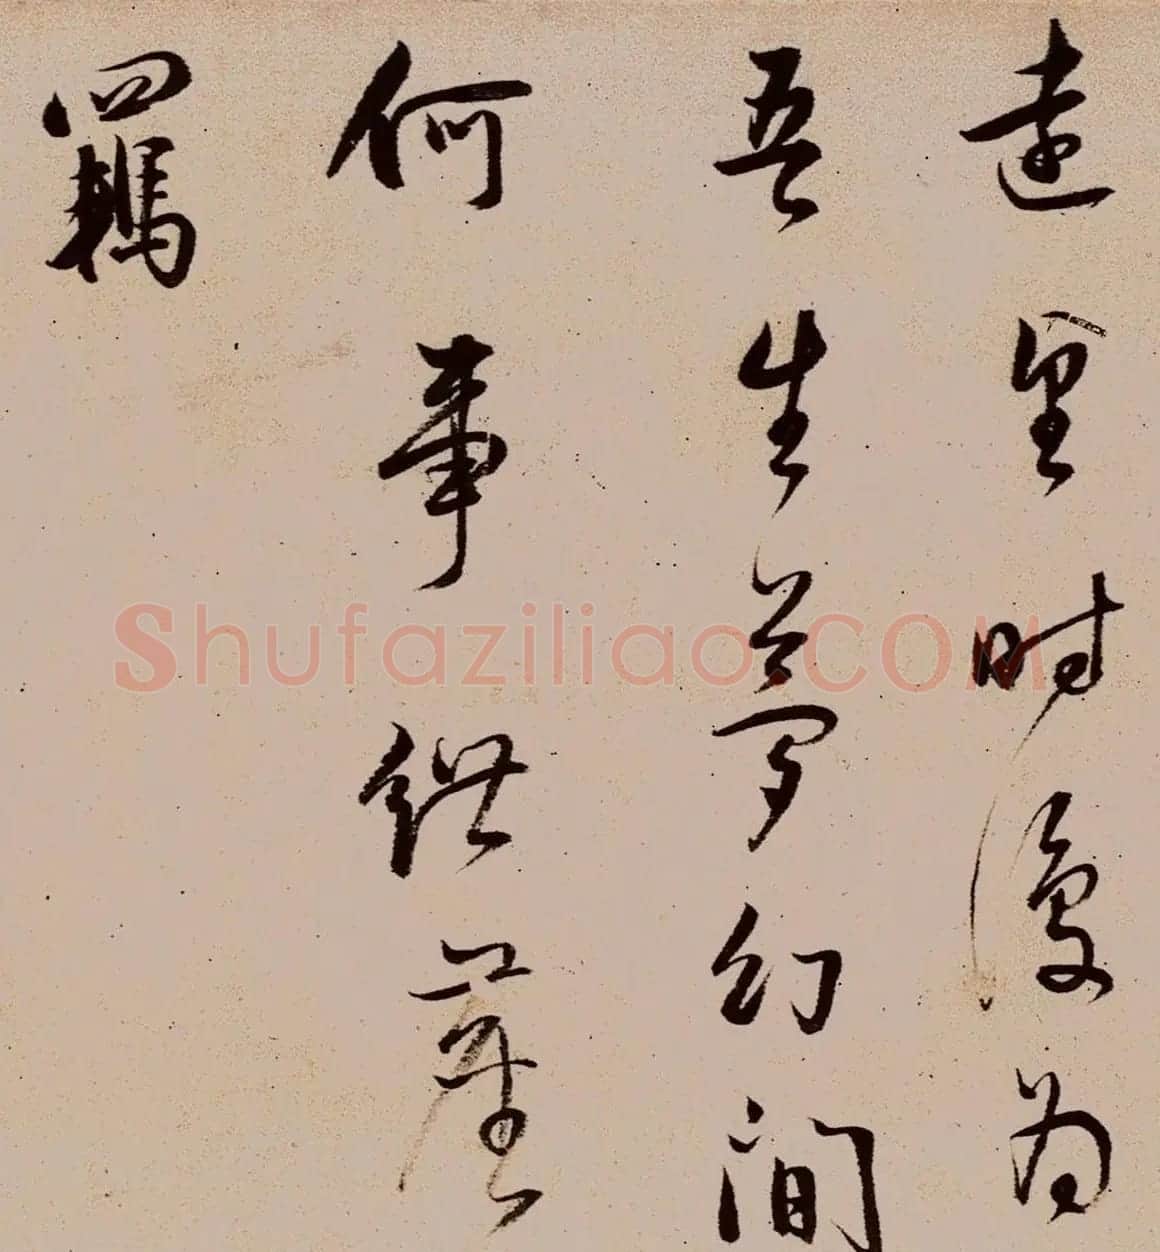 遠望時復為
吾生夢幻間
何事紲塵
羈
Shufaziliao.COM